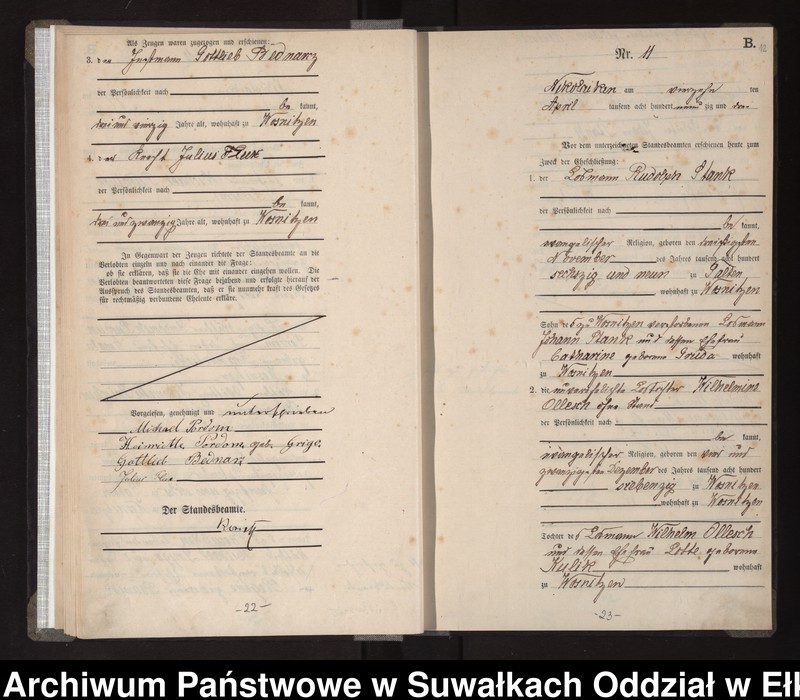 Als Zeugen waren zugezogen und erschienen:
3. der Instmann Gottlieb Bednarz
der Persönlichkeit nach
be kannt,
drei und vierzig Jahre alt, wohnhaft zu Wosnitzen
4. der Knecht Julius
der Persönlichkeit nach
be kannt,
drei und zwanzig Jahre alt, wohnhaft zu Wosnitzen
In Gegenwart der Zeugen richtete der Standesbeamte an die
Verlobten einzeln und nach einander die Frage:
ob sie erklären, daß sie die Ehe mit einander eingehen wollen. Die
Verlobten beantworteten diese Frage bejahend und erfolgte hierauf der
Ausspruch des Standesbeamten, daß er sie nunmehr kraft des Gesetzes
für rechtmäßig verbundene Eheleute erkläre.
Vorgelesen, genehmigt und unterschrieben
Michael Pordom
Heinriette Pordom geb. Grigo
Gottlieb Bednarz
Julius
Der Standesbeamte.
-22-
B.
Nr. 11
Nikolaiken am vierzehn ten
April tausend acht hundert neun zig und drei
Vor dem unterzeichneten Standesbeamten erschienen heute zum
Zweck der Eheschließung:
1. der Losmann Rudolph Stank
der Persönlichkeit nach
be kannt,
evangelischer Religion, geboren den dreißigsten
November des Jahres tausend acht hundert
sechszig und neun zu Salten
, wohnhaft zu Wosnitzen
Sohn des zu Wosnitzen verstorbenen Losmann
Johann Stank und dessen Ehefrau
Catharine geborene wohnhaft
zu Wosnitzen
2. die unverehelichte Lostochter Wilhelmine
Ollesch ohne Stand
der Persönlichkeit nach
be kannt,
evangelischer Religion, geboren den vier und
zwanzigsten Dezember des Jahres tausend acht hundert
siebenzig zu Wosnitzen
, wohnhaft zu Wosnitzen
Tochter des Losmann Wilhelm Ollesch
und dessen Ehefrau Lotte geborene
Kulik wohnhaft
zu Wosnitzen
-23-
Archiwum Państwowe w Suwałkach Oddział w Eł